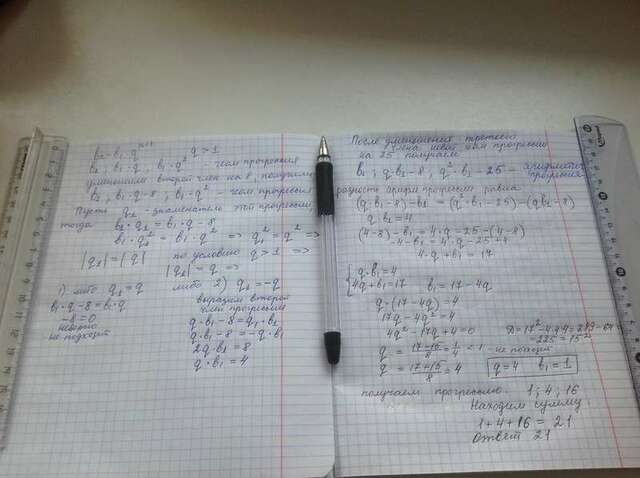 b₂ = b₁·q q > 1
b₁; b₁·q b₁·q² - геом прогрессия
уменьшаем второй член на 8, получим
b₁, b₁·q-8, b₁·q² - геом прогрессия
Пусть q₁ - знаменатель этой прогрессии,
тогда b₁·q₁ = b₁·q-8
b₁·q₁² = b₁·q² => q₁² = q² =>
|q₁| = |q| по условию q > 1 =>
|q₁| = q =>
1) либо q₁ = q либо 2) q₁ = -q
b₁·q-8 = b₁·q
-8 = 0
неверно
не подходит
выразим второй
член прогрессии
q·b₁-8 = q₁·b₁
q·b₁-8 = -q·b₁
2q·b₁ = 8
q·b₁ = 4
После уменьшения третьего
члена новой геом прогрессии
на 25 получаем
b₁; q·b₁-8; q²·b₁-25 - арифметич
прогрессия
разность арифм прогрессии равна
(q·b₁-8)-b₁ = (q²·b₁-25)-(qb₁-8)
q b₁ = 4
(4-8)-b₁ = 4·q-25-(4-8)
-4-b₁ = 4·q-25+4
4·q+b₁ = 17
q·b₁ = 4
4q+b₁ = 17 b₁ = 17-4q
q·(17-4q) = 4
17q-4q² = 4
4q²-17q+4 = 0 D = 17²-4·4·4 = 289-64
=225 = 15²
q = 17-15/8 = 1/4 < 1 - не подходит
q = 17+15/8 = 4 q = 4 b₁ = 1
получаем прогрессию. 1; 4; 16
Находим сумму:
1+4+16 = 21
Ответ 21